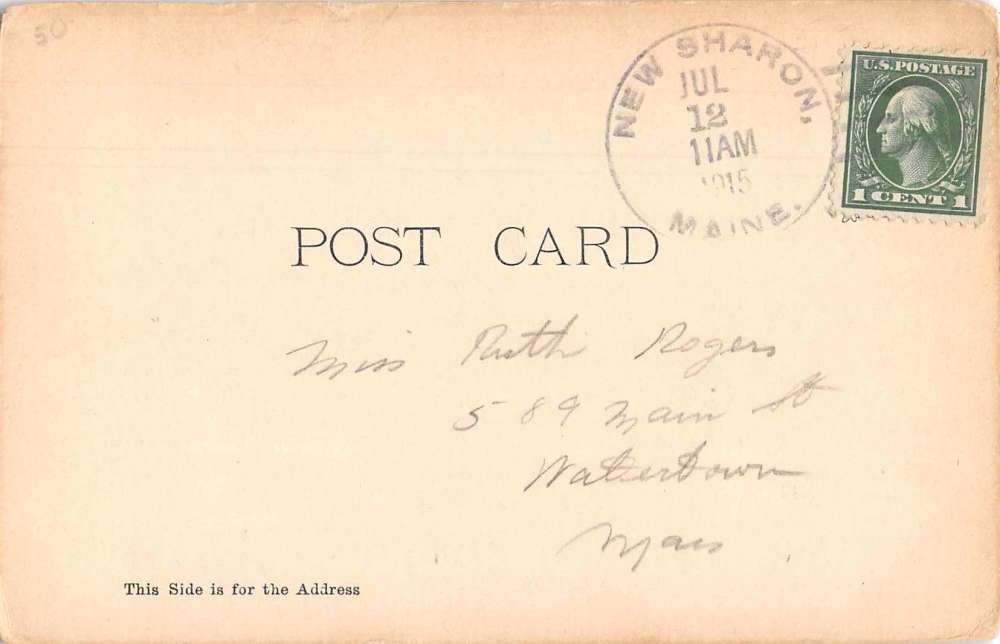 50
NEW SHARON,
JUL
12
11AM
1915
MAINE.
U.S. POSTAGE
1 CENT 1
POST CARD
Miss Ruth Rogers
589 Main St
Watertown
Mass
This Side is for the Address